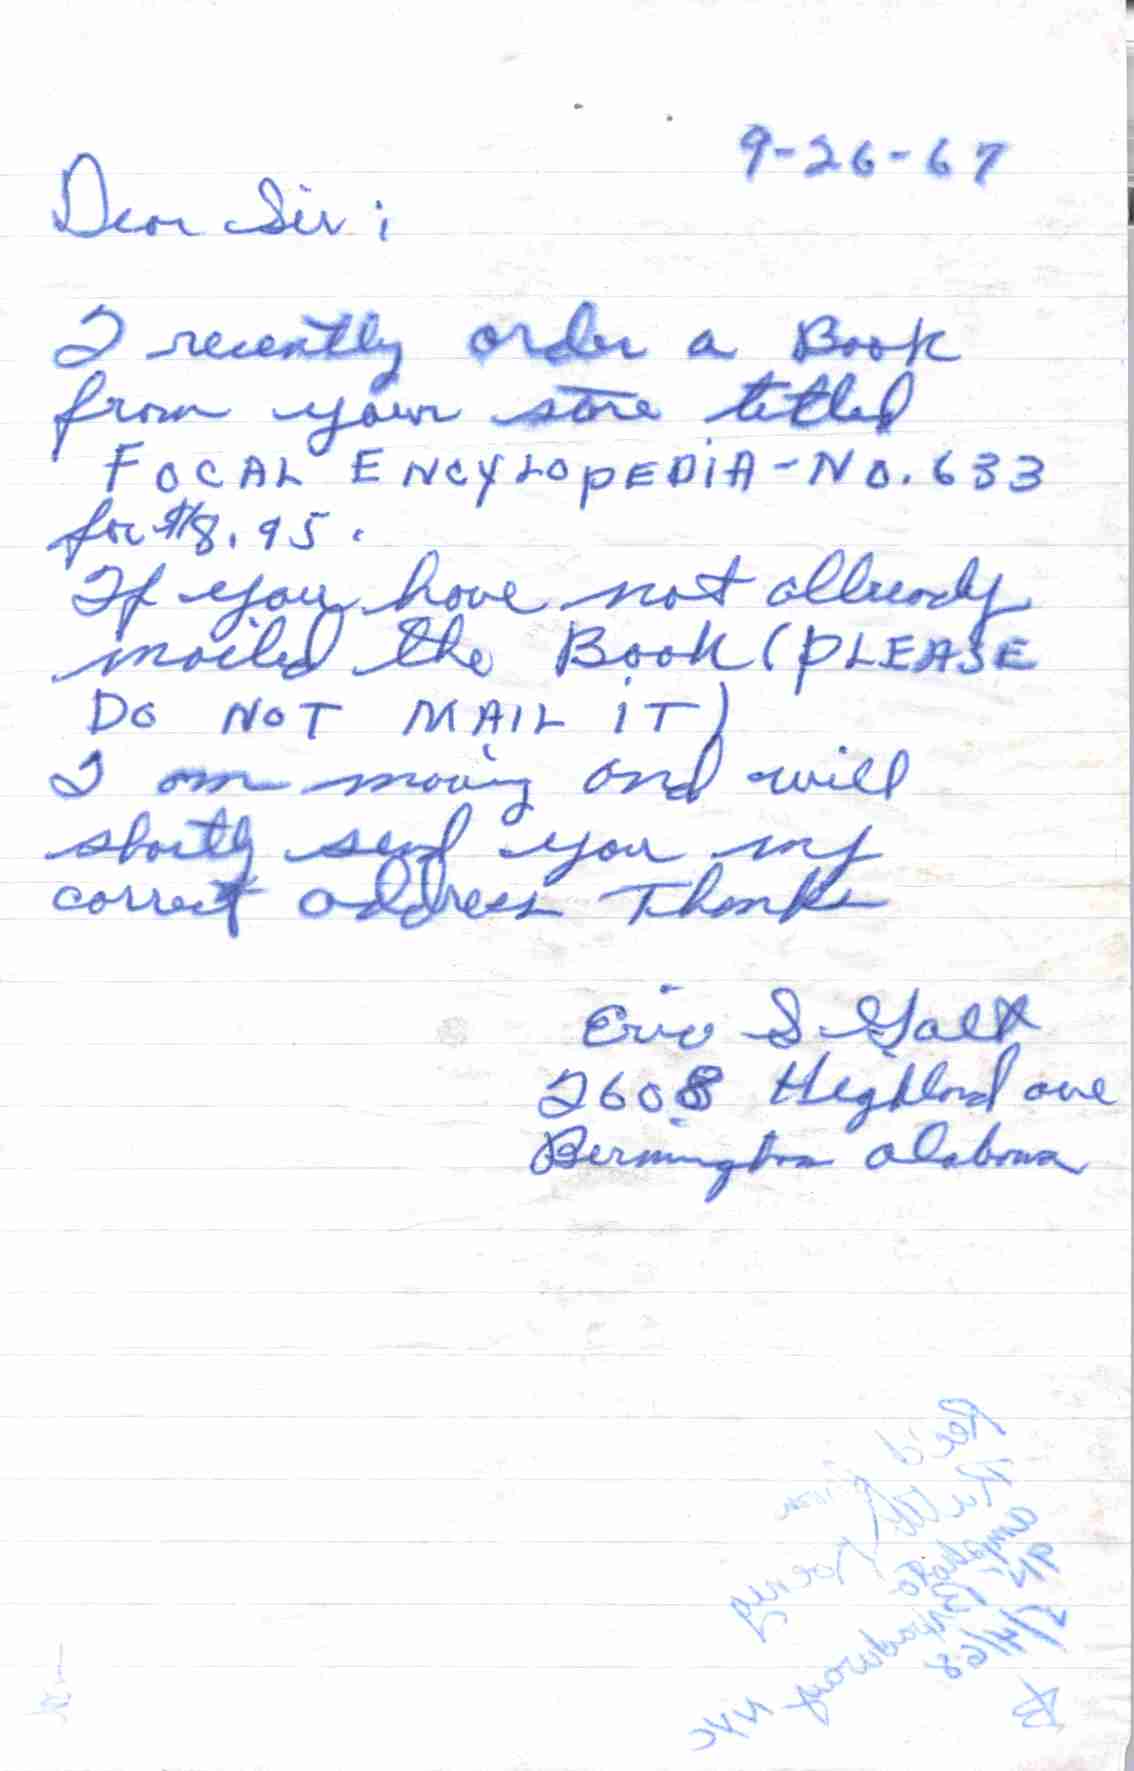 9-26-67
Dear Sir;
I recently order a Book
from your store titled
FOCAL ENCYLOPEDIA-NO. 633
for $8.95.
If you have not allready
mailed the Book (PLEASE
DO NOT MAIL iT)
I am moving and will
shortly send you my
correct address Thanks
Eric S. Galt
2608 Highland ave
Birmingham alabama
Rec'd
Ruth
NYC